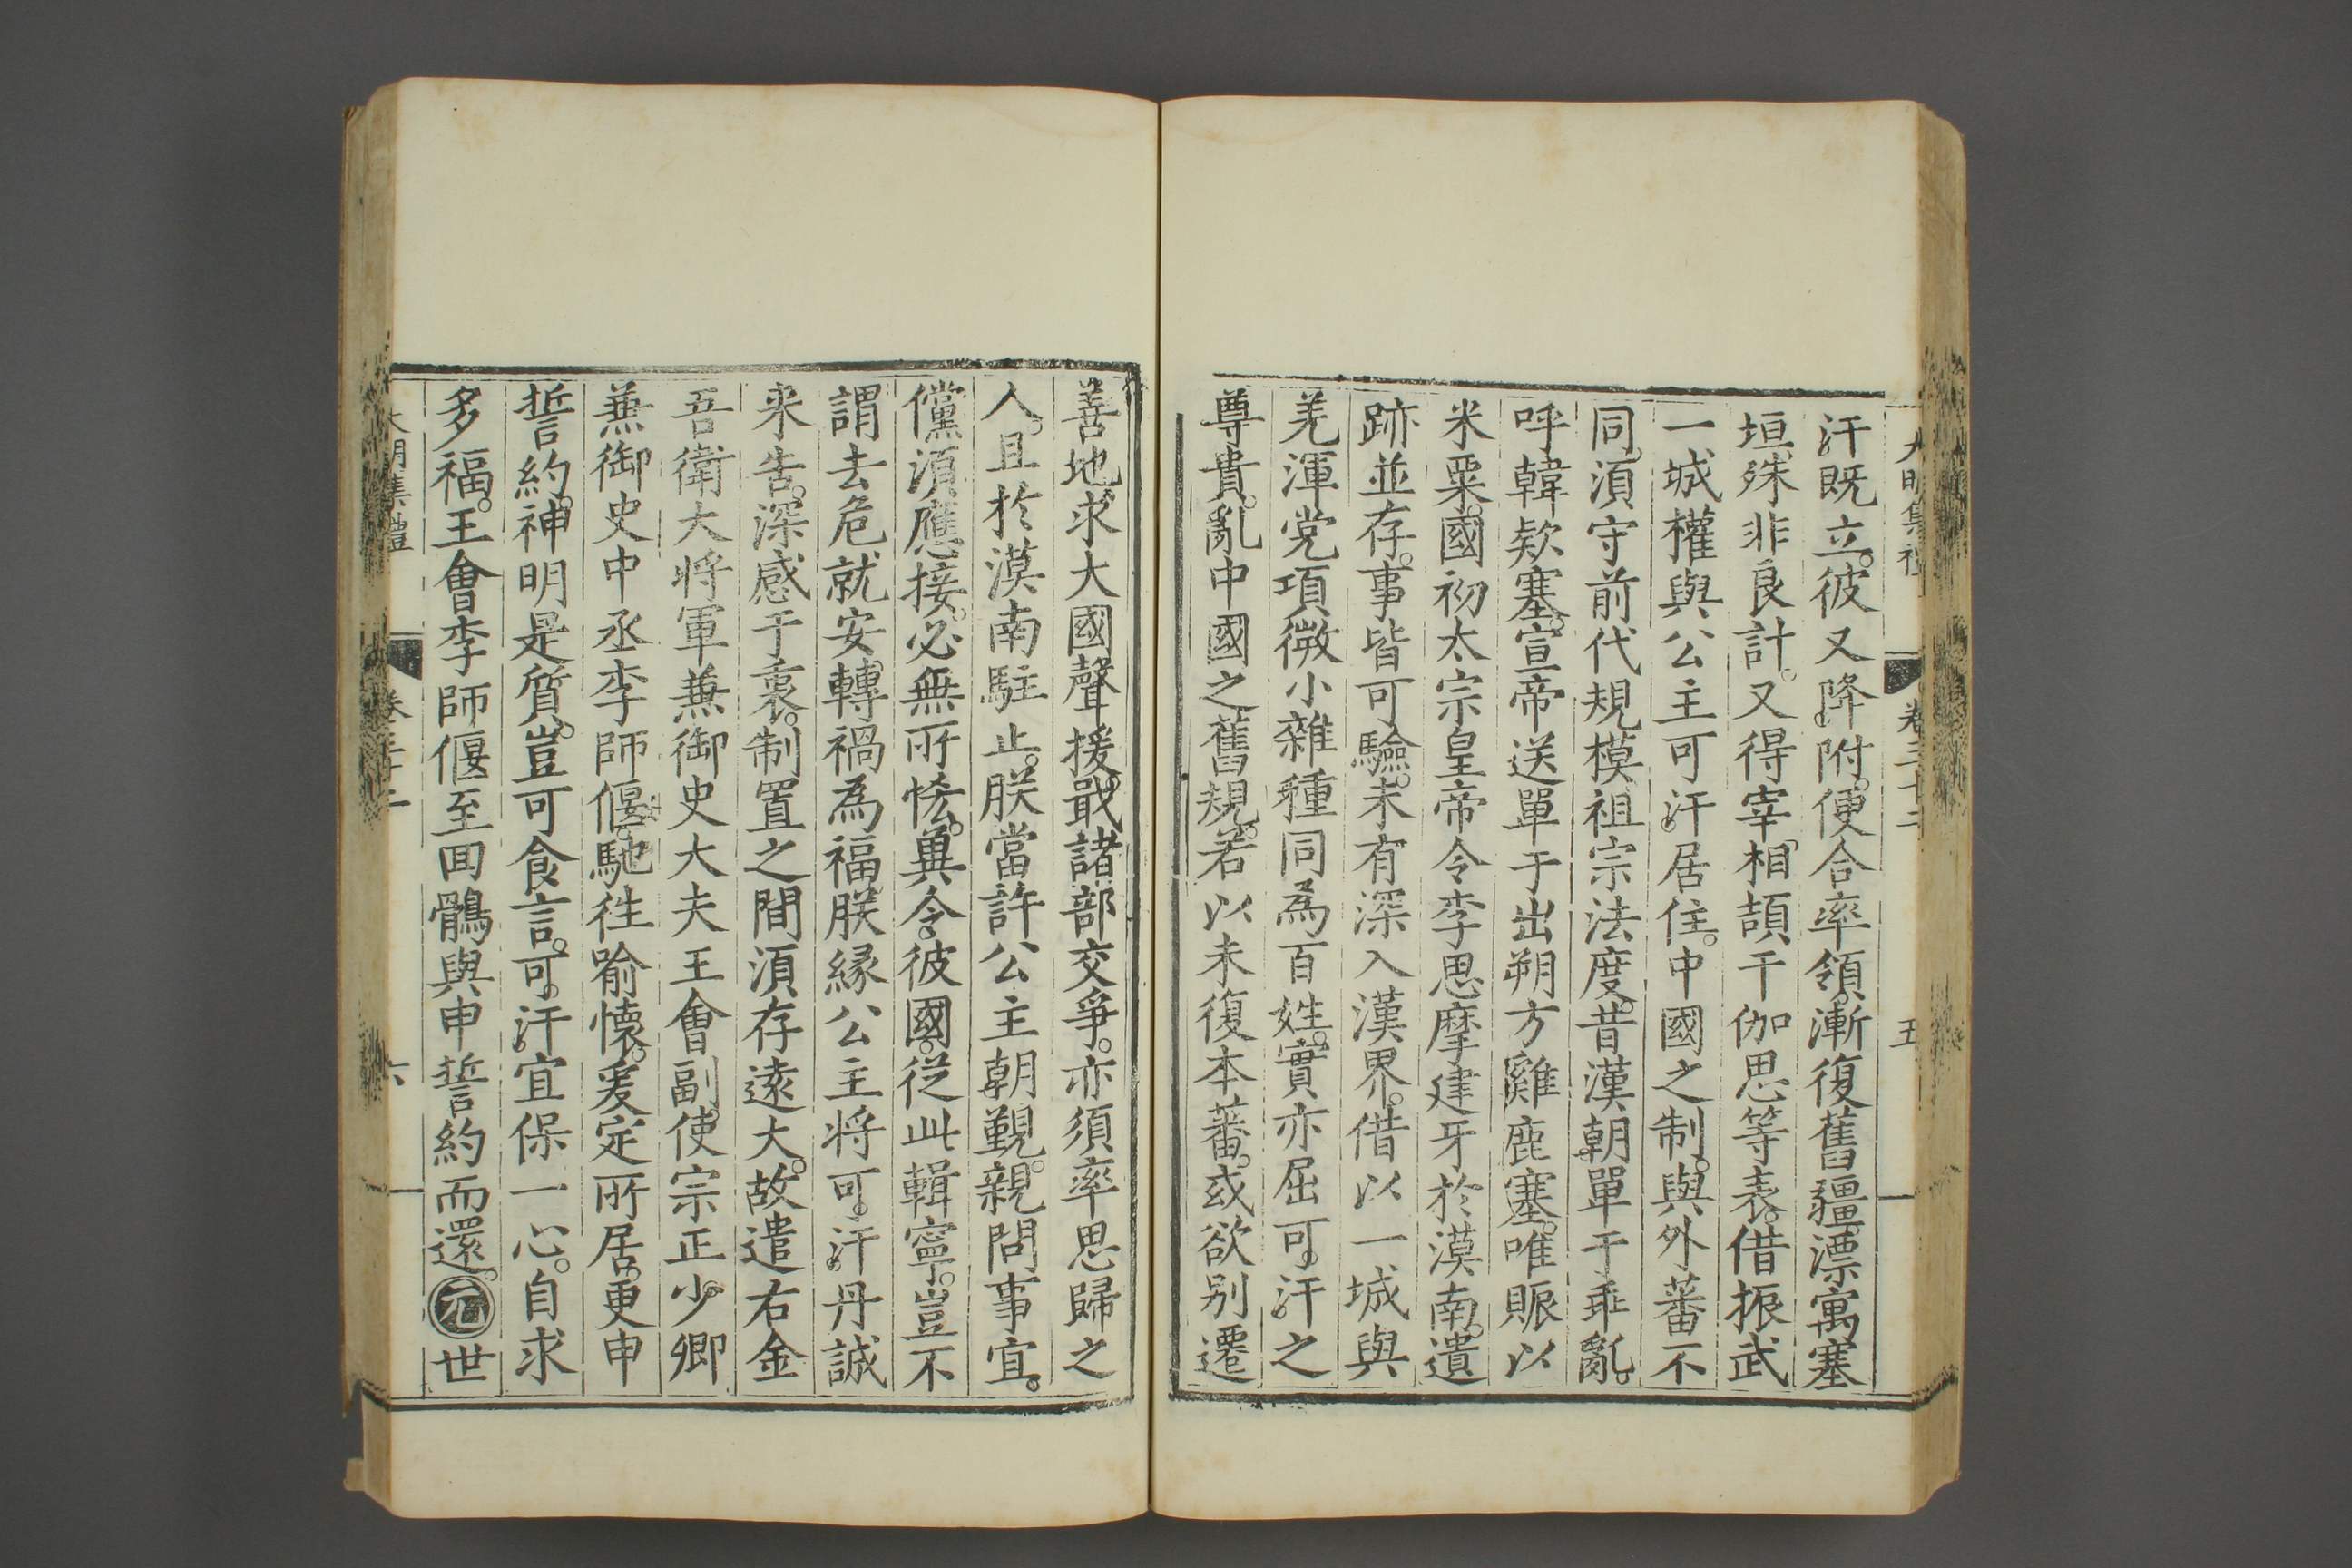 大明集禮 卷三十二 五
汗既立。彼又降附。便合率領。漸復舊疆。漂寓塞
垣。殊非良計。又得宰相頡干伽思等表。借振武
一城權與公主可汗居住。中國之制。與外蕃不
同。須守前代規模祖宗法度。昔漢朝單于乖亂。
呼韓欵塞。宣帝送單于出朔方雞鹿塞。唯賑以
米粟。國初太宗皇帝令李思摩建牙於漠南。遺
跡並存。事皆可驗。未有深入漢界。借以一城與
羌渾党項微小雜種同為百姓。實亦屈可汗之
尊貴。亂中國之舊規。若以未復本蕃。或欲别遷
善地求大國聲援。戢諸部交爭。亦須率思歸之
人。且於漠南駐止。朕當許公主朝覲。親問事宜。
儻須應接。必無所恡。兾令彼國。從此輯寧。豈不
謂去危就安。轉禍為福。朕緣公主將可汗丹誠
来告。深感于衷。制置之間須存遠大。故遣右金
吾衛大将軍兼御史大夫王會副使宗正少卿
兼御史中丞李師偃。馳徃喻懷。爰定所居。更申
誓約。神明是質。豈可食言。可汗宜保一心。自求
多福。王會李師偃至囬鶻與申誓約而還。元世
大明集禮 卷三十二 六